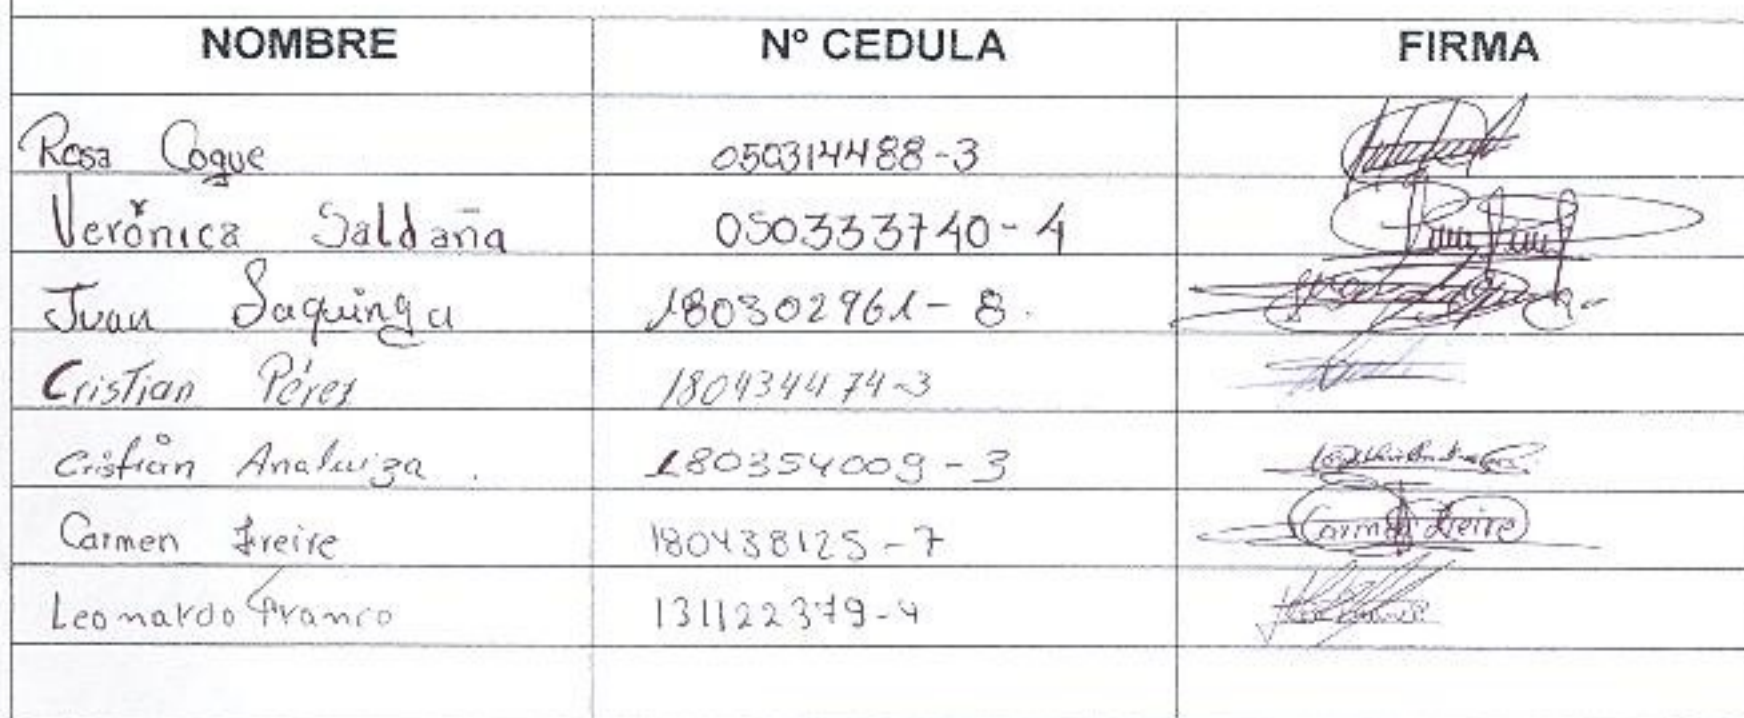 NOMBRE Nº CEDULA FIRMA
Rosa Coque 050314488-3
Verónica Saldaña 050333740-4
Juan Saquinga 180302961-8.
Cristian Pérez 180434474-3
Cristian Analuiza. 180354009-3
Carmen Freire 180438125-7 Carmen Freire
Leonardo Franco 131122379-4